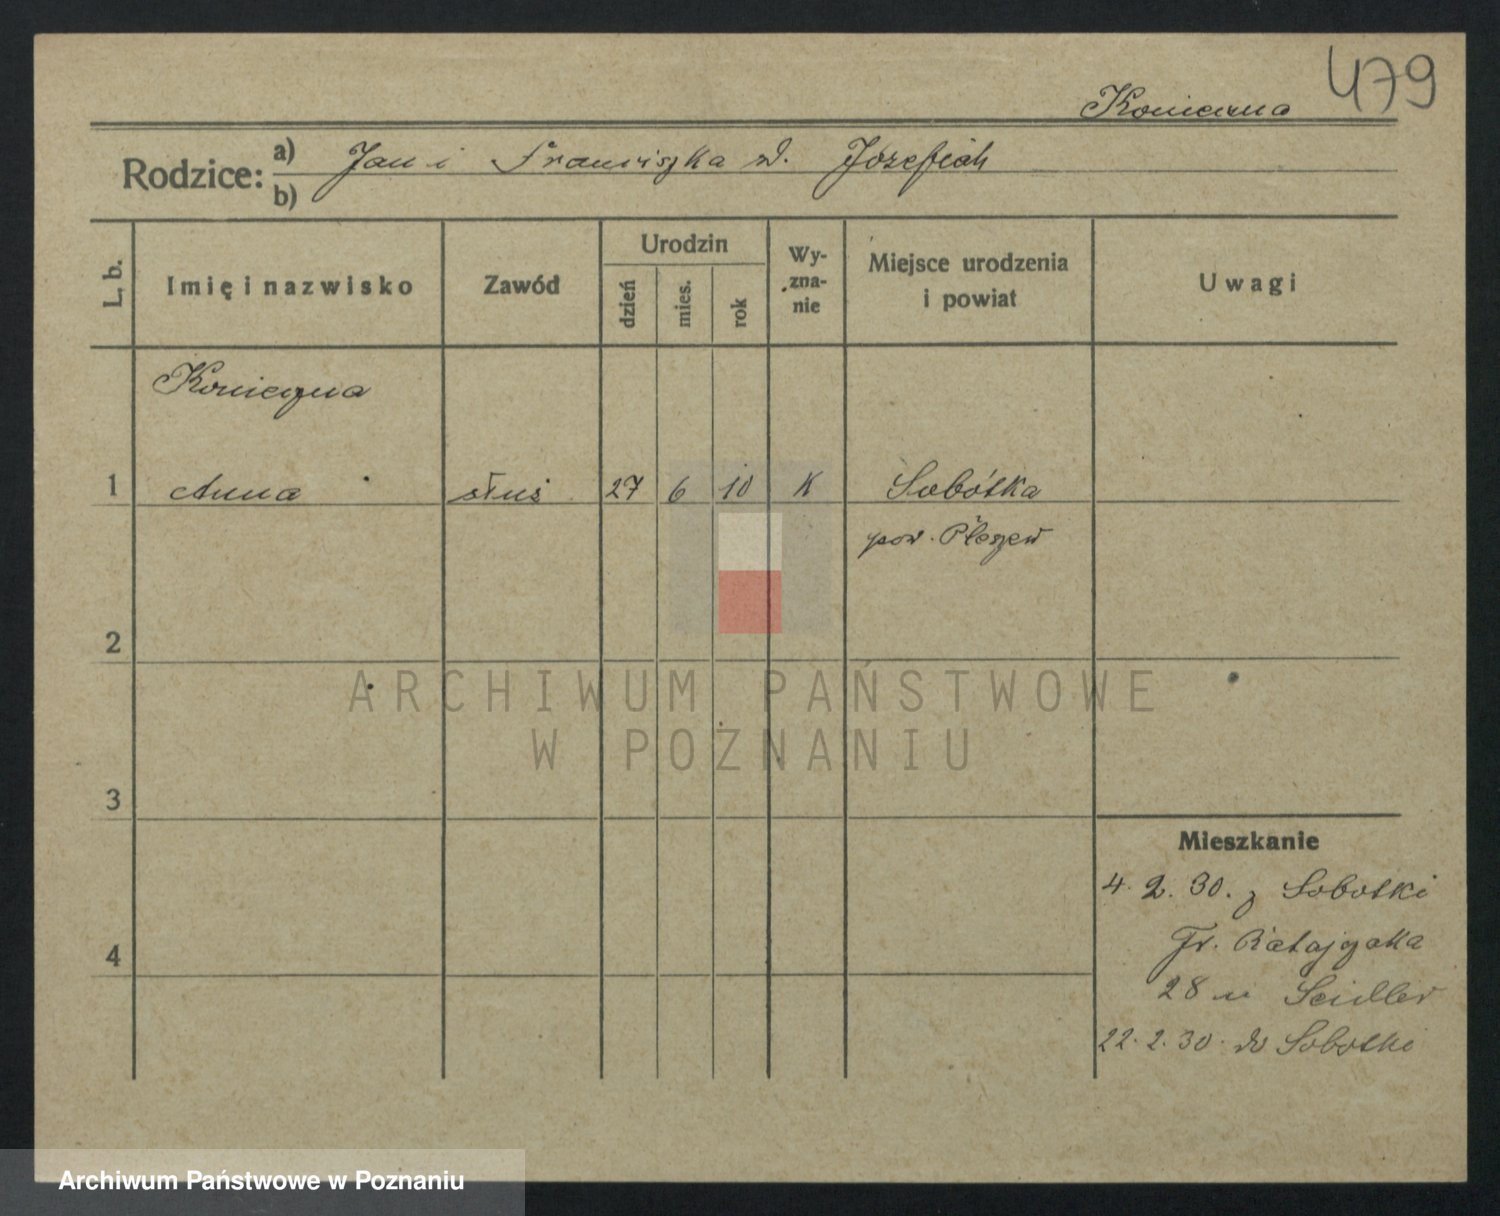 479
Konieczna
Rodzice: a) Jan i Franciszka z d. Józefiak
b)
L. b. Imię i nazwisko Zawód Urodzin dzień mies. rok Wy- zna- nie Miejsce urodzenia i powiat Uwagi
Konieczna
1 Anna służ 27 6 10 K Sobótka
pow. Pleszew
2
ARCHIWUM PAŃSTWOWE
W POZNANIU
3
Mieszkanie
4. 2. 30. z Sobotki
4 Fr. Ratajczaka
28 u Seidler
22. 2. 30. do Sobotki
Archiwum Państwowe w Poznaniu